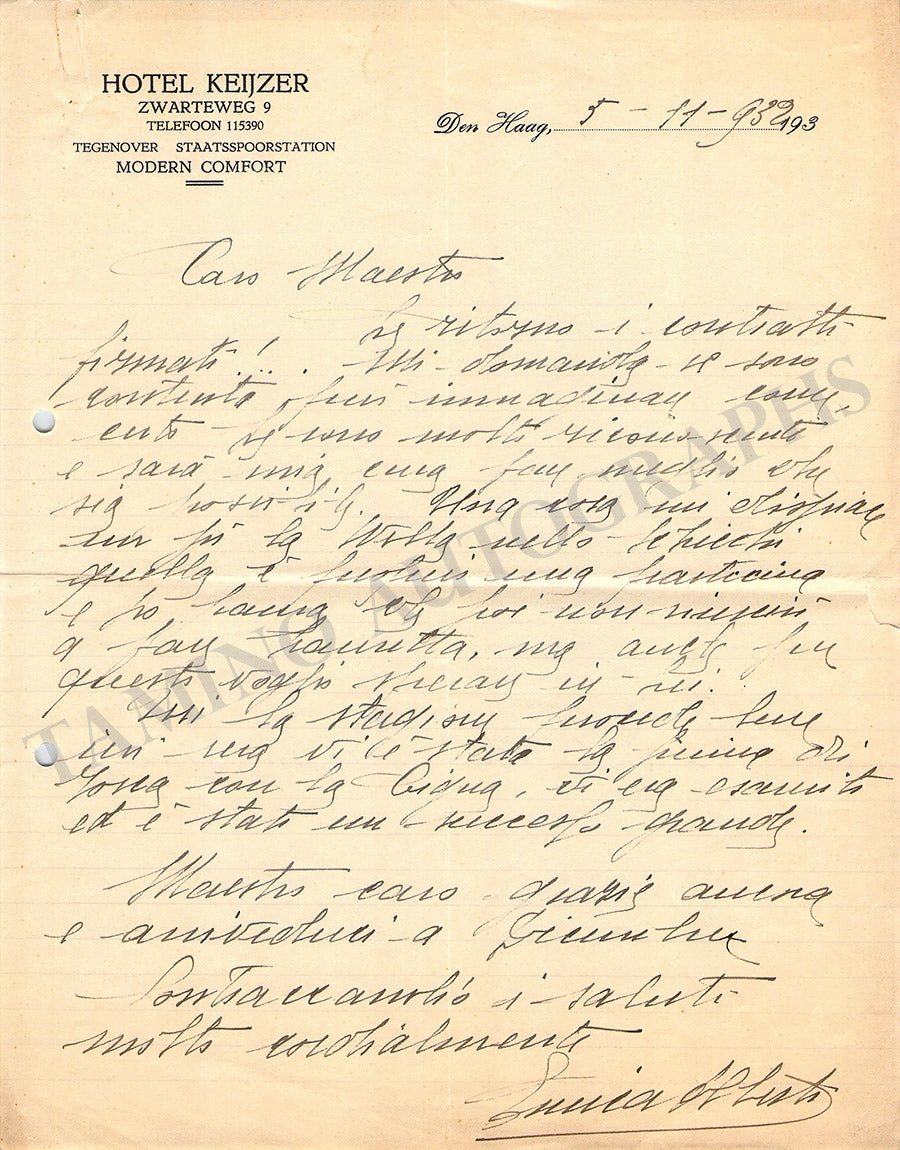 HOTEL KEIJZER
ZWARTEWEG 9
TELEFOON 115390
TEGENOVER STAATSSPOORSTATION
MODERN COMFORT
Den Haag, 5 - 11 - 932 193
Caro Maestro
Le ritorno i contratti
firmati!... Mi domanda se sono
contenta, può immaginare come
certo Le sono molto riconoscente
e sarà mia cura fare meglio che
sia possibile. Una cosa mi dispiace
la Nella nello Schicchi
quella è proprio una particina
e ho paura che poi non riuscirò
a fare Lauretta, ma anche per
questo voglio sperare in Lei.
la stagione procede bene
ieri sera vi è stata la prima di
Tosca con la Cigna, vi era esaurito
ed è stato un successo grande.
Maestro caro grazie ancora
e arrivederci a Dicembre
Contraccambio i saluti
molto cordialmente
Alberti
TAMINO AUTOGRAPHS